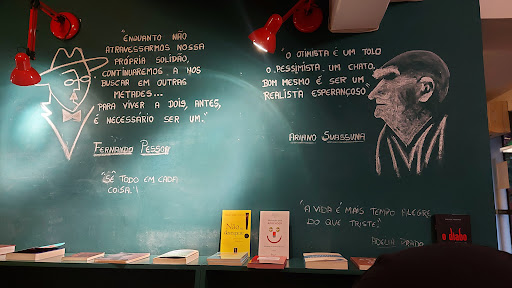 "ENQUANTO NÃO
ATRAVESSARMOS NOSSA
PRÓPRIA SOLIDÃO,
CONTINUAREMOS A NOS
BUSCAR EM OUTRAS
METADES...
PARA VIVER A DOIS, ANTES,
É NECESSÁRIO SER UM."
FERNANDO PESSOA
"SÊ TODO EM CADA
COISA."
"O OTIMISTA É UM TOLO
O PESSIMISTA, UM CHATO.
BOM MESMO É SER UM
REALISTA ESPERANÇOSO"
ARIANO SUASSUNA
"A VIDA É MAIS TEMPO ALEGRE
DO QUE TRISTE."
ADÉLIA PRADO
o diabo